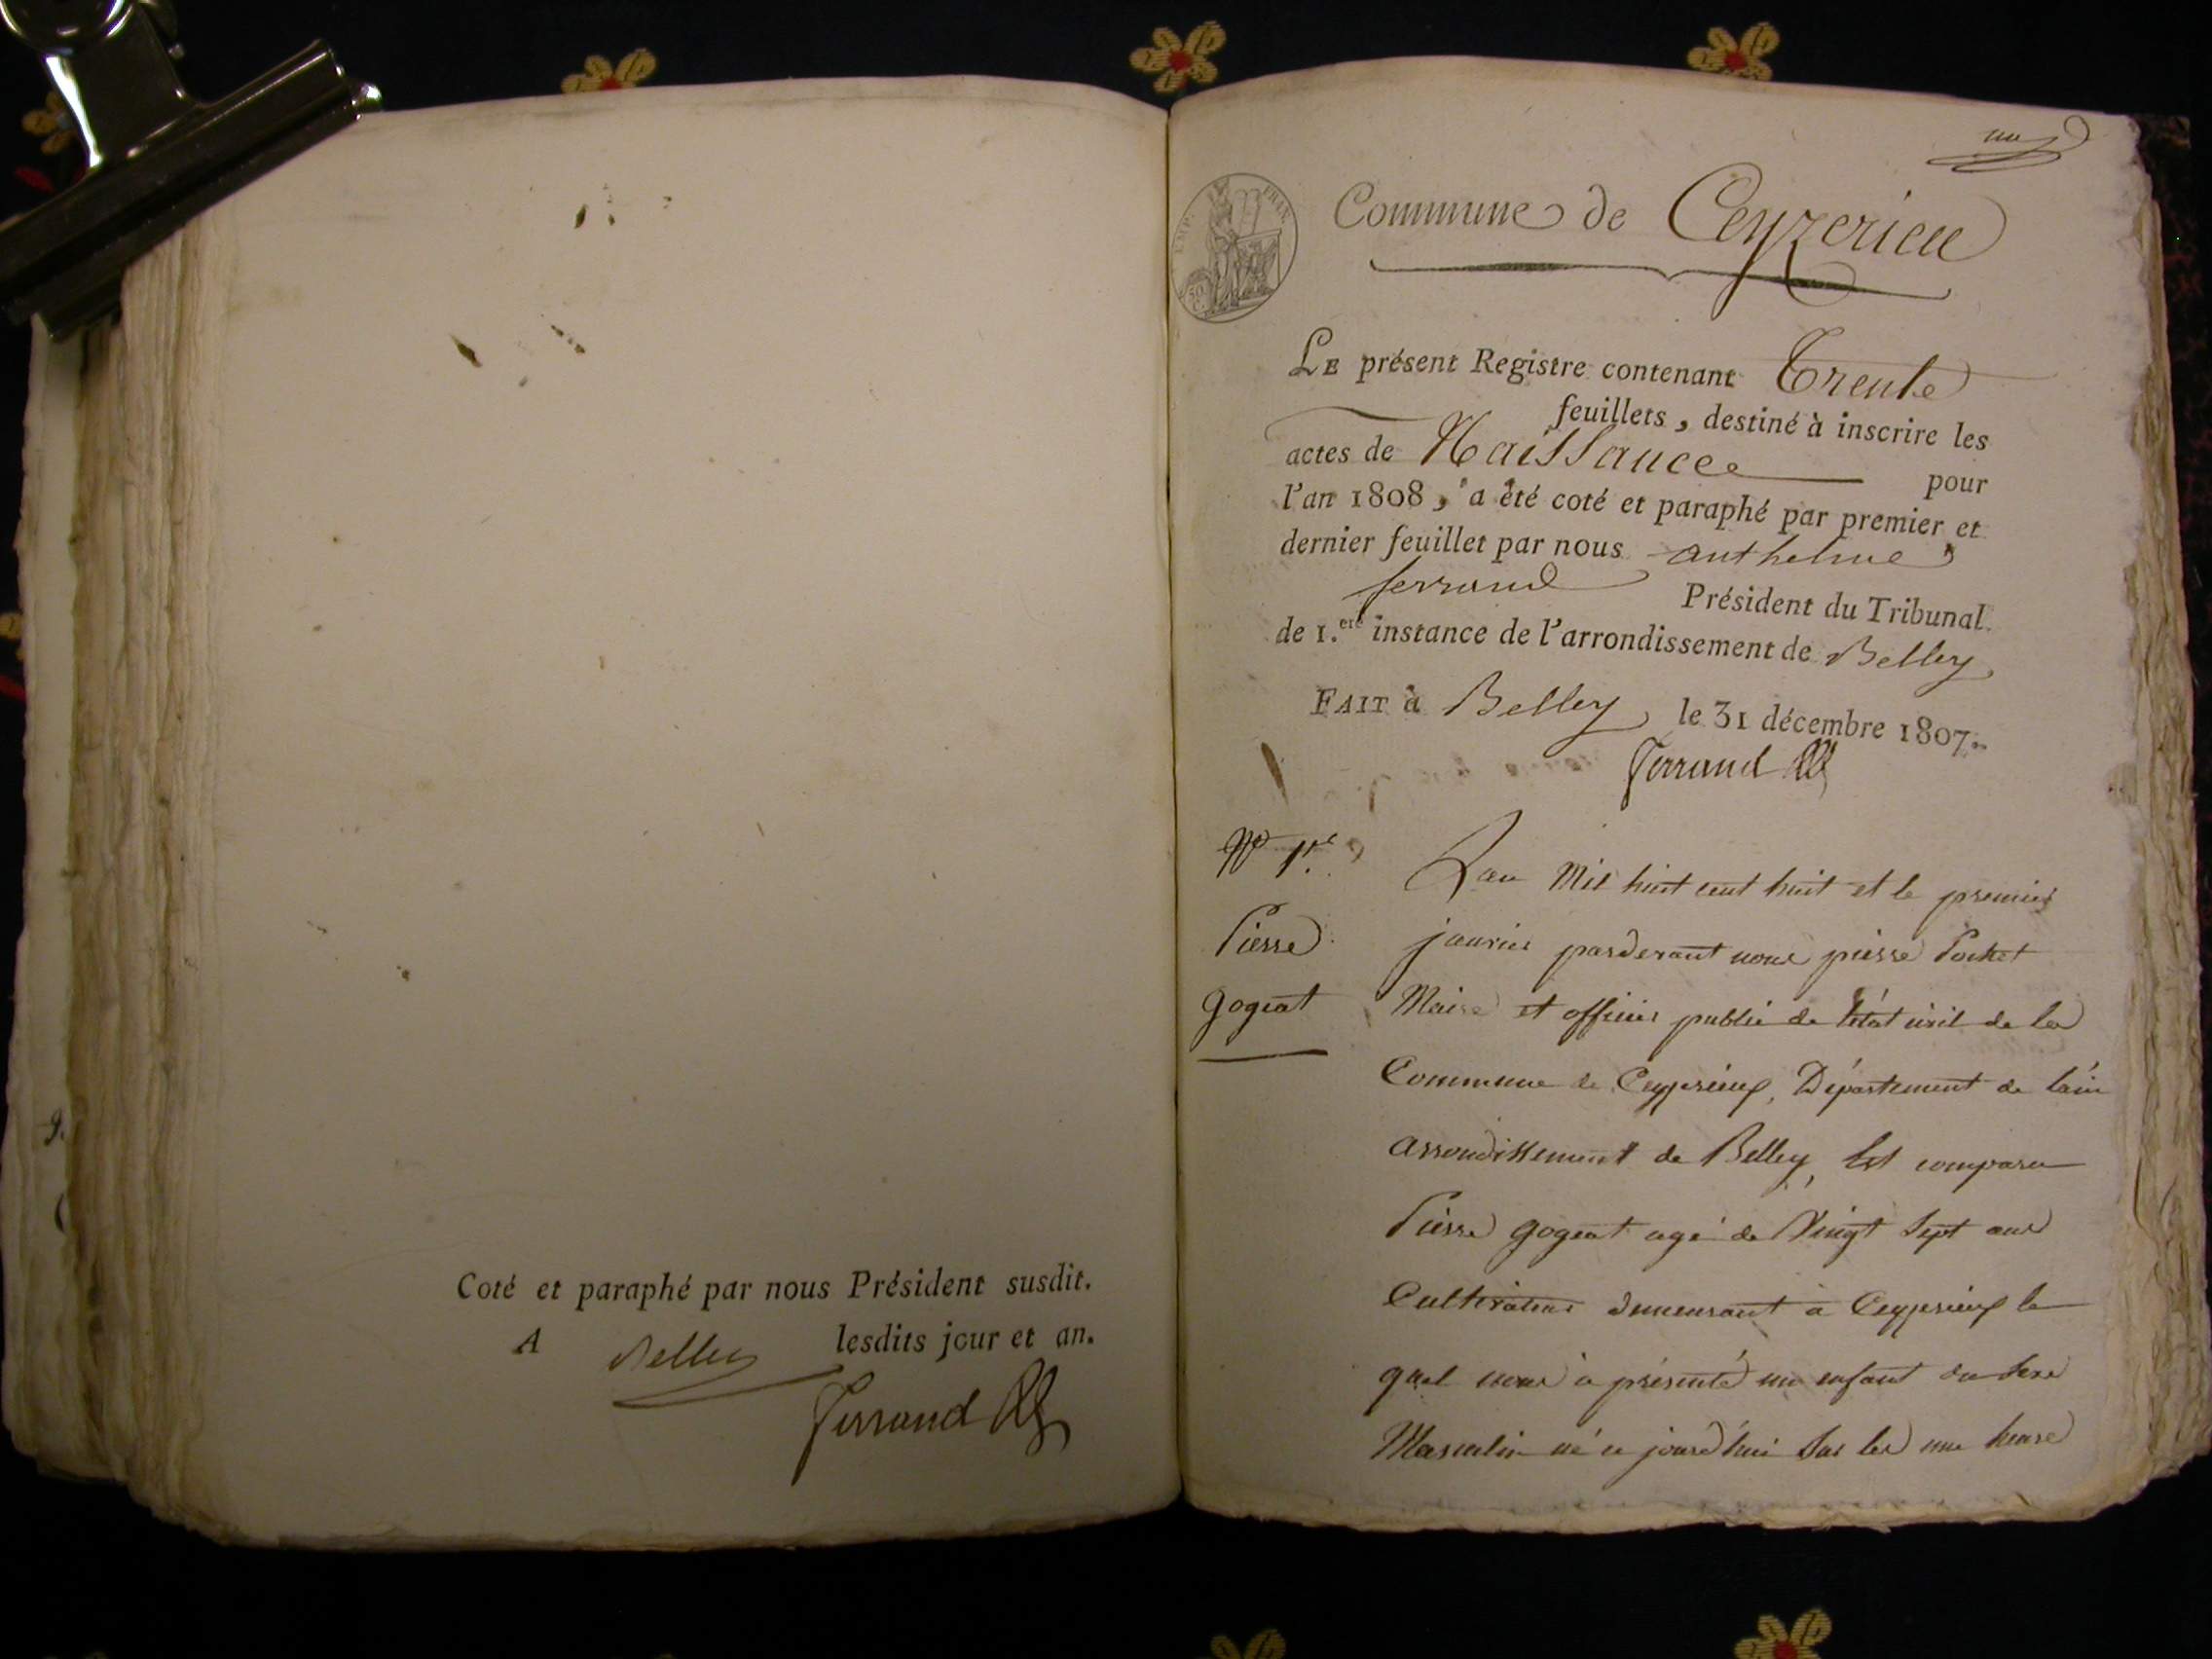 Coté et paraphé par nous Président susdit.
A Belley lesdits jour et an.
Ferrand
un
EMP. FRAN.
50 C.
Commune de Ceyzerieu
LE présent Registre contenant Trente
feuillets, destiné à inscrire les
actes de Naissance pour
l'an 1808, a été coté et paraphé par premier et
dernier feuillet par nous anthelme
ferrand Président du Tribunal
de 1.ere instance de l'arrondissement de Belley
FAIT à Belley le 31 décembre 1807.
Ferrand
No 1er
Pierre
gogeat
Lan Mil huit cent huit et le premier
janvier pardevant nous pierre Pochet
Maire et officier public de létat civil de la
Commune de Ceyzerieux, Département de lain
arrondissement de Belley, Est comparu
Pierre gogeat agé de Vingt Sept ans
Cultivateur demeurant à Ceyzerieux le
quel nous à présenté un enfant du sexe
Masculin né ce jourdhui sur les une heure